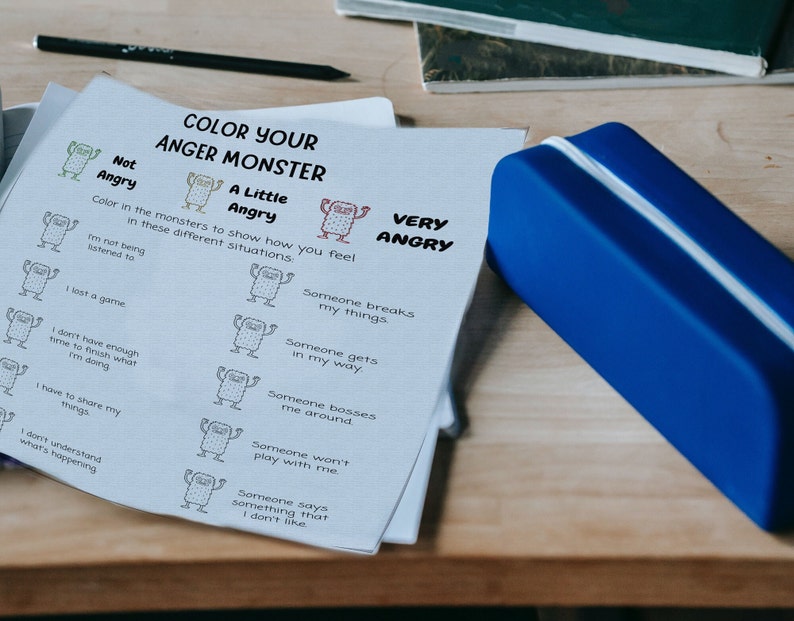 COLOR YOUR
ANGER MONSTER
Not
Angry
A Little
Angry
VERY
ANGRY
Color in the monsters to show how you feel
in these different situations:
I'm not being
listened to.
I lost a game.
I don't have enough
time to finish what
I'm doing.
I have to share my
things.
I don't understand
what's happening.
Someone breaks
my things.
Someone gets
in my way.
Someone bosses
me around.
Someone won't
play with me.
Someone says
something that
I don't like.